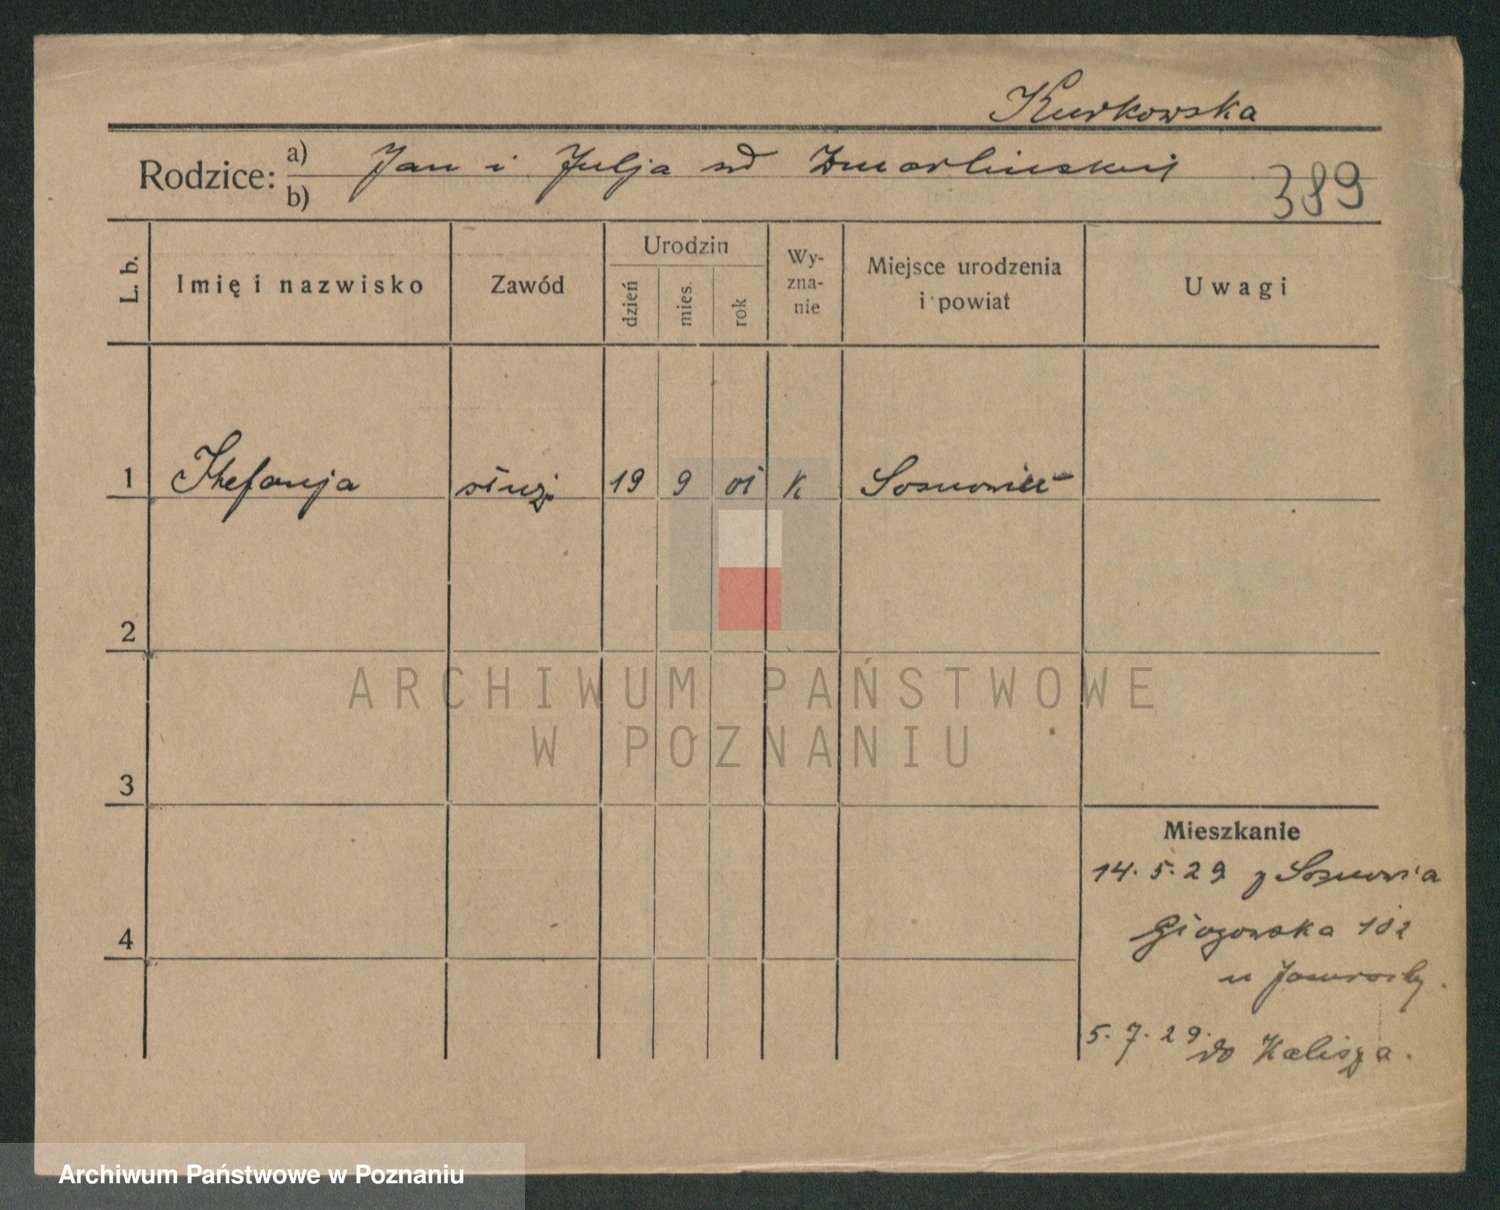 Kurkowska
Rodzice: a) b) Jan i Julja
389
L. b.
Imię i nazwisko
Zawód
Urodzin
dzień
mies.
rok
Wy-
zna-
nie
Miejsce urodzenia
i powiat
Uwagi
1 Stefanja służ. 19 9 01 K Sosnowiec
2
3
4
Mieszkanie
14. 5. 29 z
Głogowska 102
u
5. 7. 29. do Kalisza.
ARCHIWUM PAŃSTWOWE
W POZNANIU
Archiwum Państwowe w Poznaniu